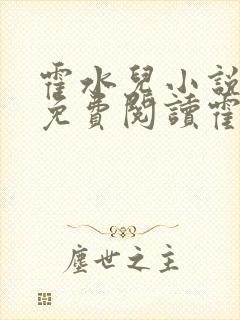 霍水兒小說
免費閱讀霍
塵世之主